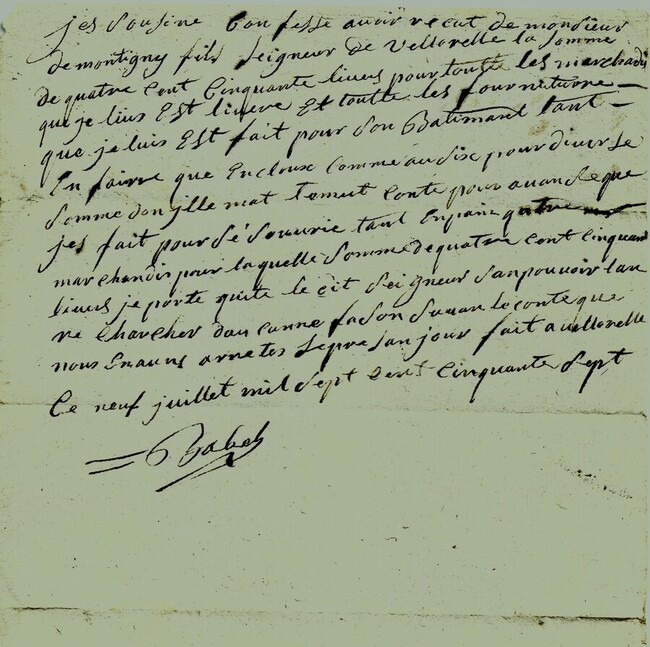 jes sousine Confesse avoir recut de monsieur
de montigny fils seigneur de vellorelle la somme
de quatre cent Cinquante livres pour toutte les marchadis
que je luis Est livere Et toutte les fourniturre
que je luis Est fait pour son Batimant tant
En fairre que En cloux Comme au six pour diverse
somme don jlle mat temut Conte pour avanse que
jes fait pour sé souvrie tant En pain
marchandis pour laquelle somme de quatre cent cinquant
livres je porte quite le cit seigneur san pouvoir lan
re charcher dau canne fason suvan le conte que
nous En avns arretes le presan jour fait a vellorelle
Ce neuf juillet mil sept Cent Cinquante sept
Babel